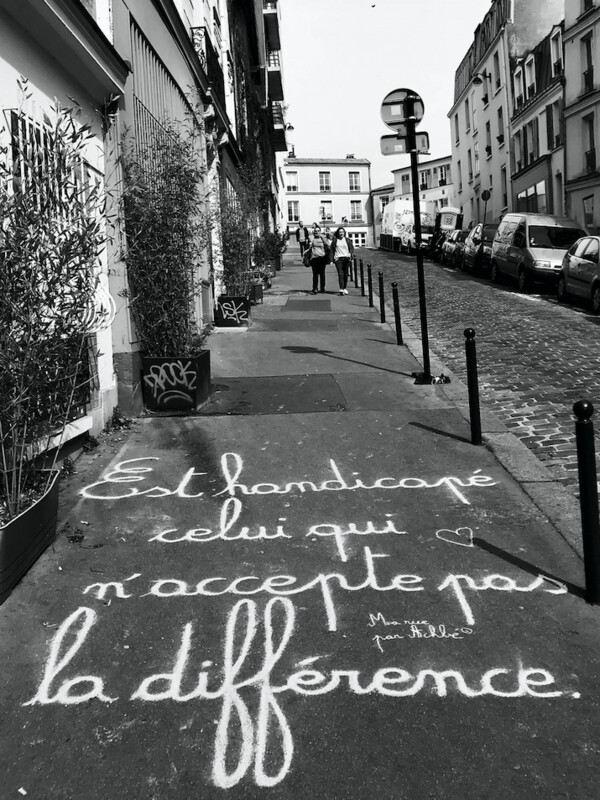 Est handicapé
celui qui
n'accepte pas
la différence.
Ma rue
par Achbé